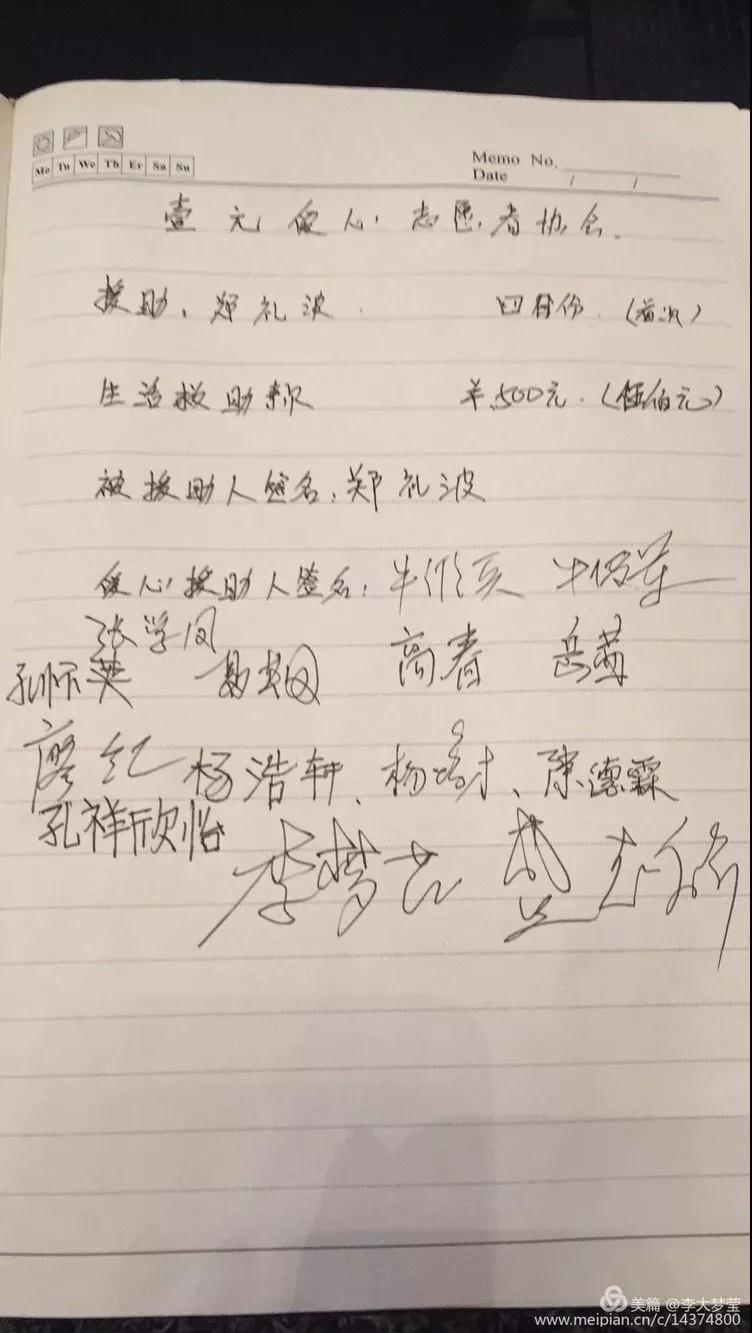 Mo Tu We Th Fr Sa Su
Memo No.
Date / /
壹元爱心志愿者协会.
援助、郑礼波 四月份.(首次)
生活救助款 ¥.500元.(伍佰元)
被援助人签名:郑礼波
爱心援助人签名:
张学凤
孔师英 高春 岳茜
廖红 杨浩轩、杨培才、陈德霖
孔祥欣怡
美篇 @李大梦莹
www.meipian.cn/c/14374800